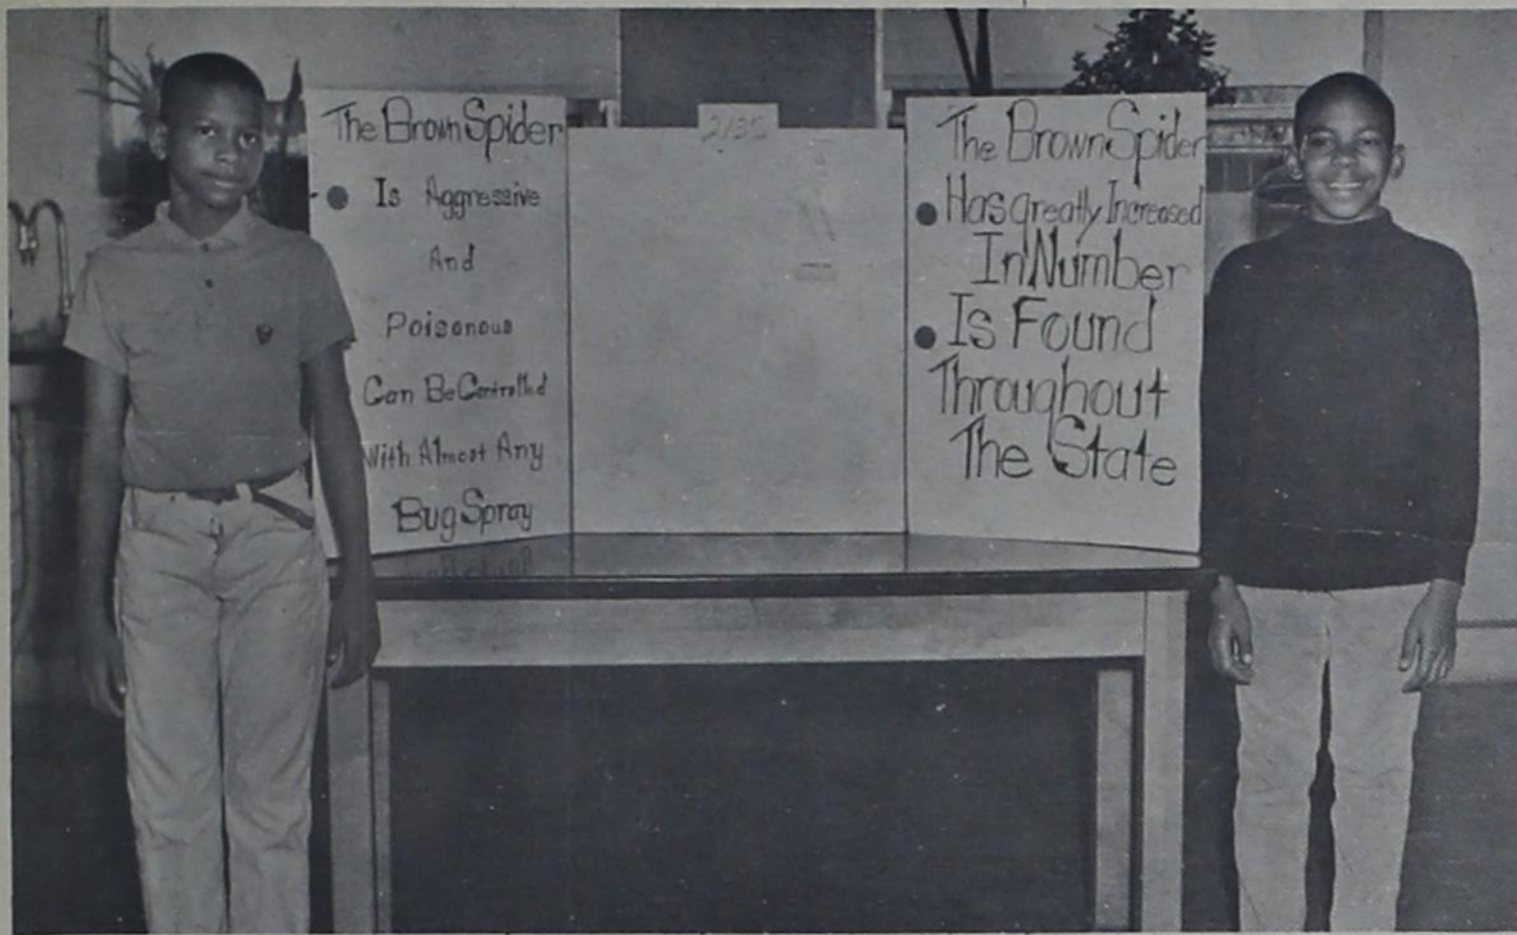 The Brown Spider
Is Aggressive
And
Poisonous
Can Be Controlled
With Almost Any
Bug Spray
The Brown Spider
Has greatly Increased
In Number
Is Found
Throughout
The State